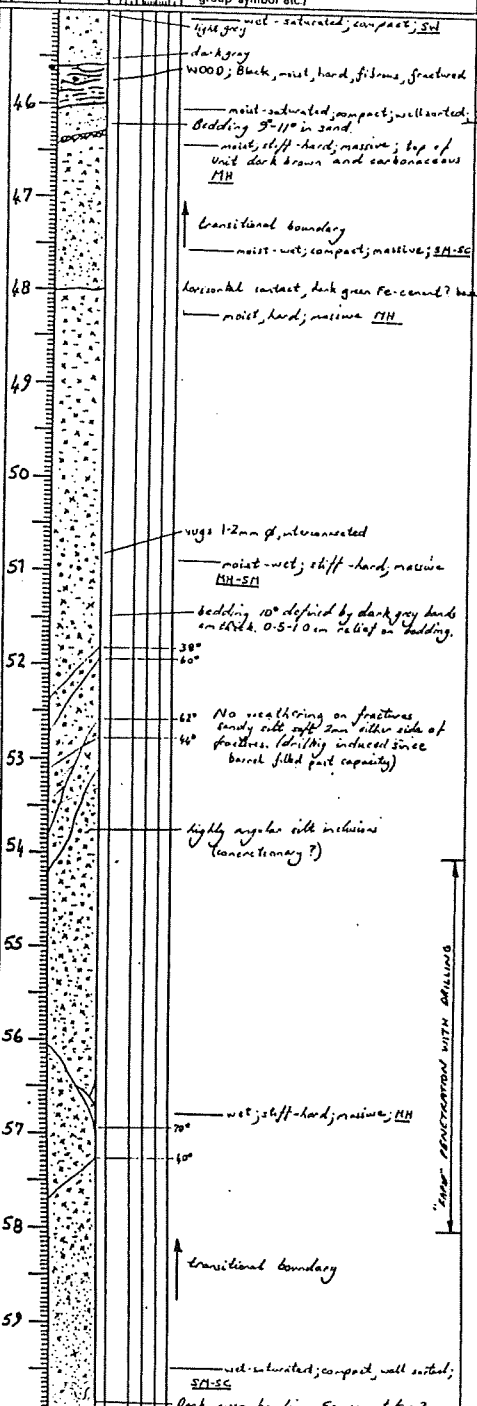 group symbol etc.)
wet-saturated; compact; SW
light grey
dark gray
WOOD; Black, moist, hard, fibrous, fractured
46
moist-saturated, compact; well sorted;
Bedding 9°-11° in sand.
moist, stiff-hard; massive; top of
unit dark brown and carbonaceous
MH
47
transitional boundary
moist-wet; compact; massive; SM-SC
48
horizontal contact, dark green Fe-cement?
moist, hard; massive MH
49
50
vugs 1-2mm ø, interconnected
51
moist-wet; stiff-hard; massive
MH-SM
bedding 10° defined by dark grey bands
cm thick. 0.5-1.0 cm relief on bedding.
52
38°
60°
62°
No weathering on fractures
sandy silt soft 2mm either side of
44°
fractures. (drilling induced since
barrel filled past capacity)
53
highly angular silt inclusions
(concretionary?)
54
55
56
"EASY" PENETRATION WITH DRILLING
wet; stiff-hard; massive; MH
57
70°
60°
58
transitional boundary
59
wet-saturated; compact, well sorted;
SM-SC